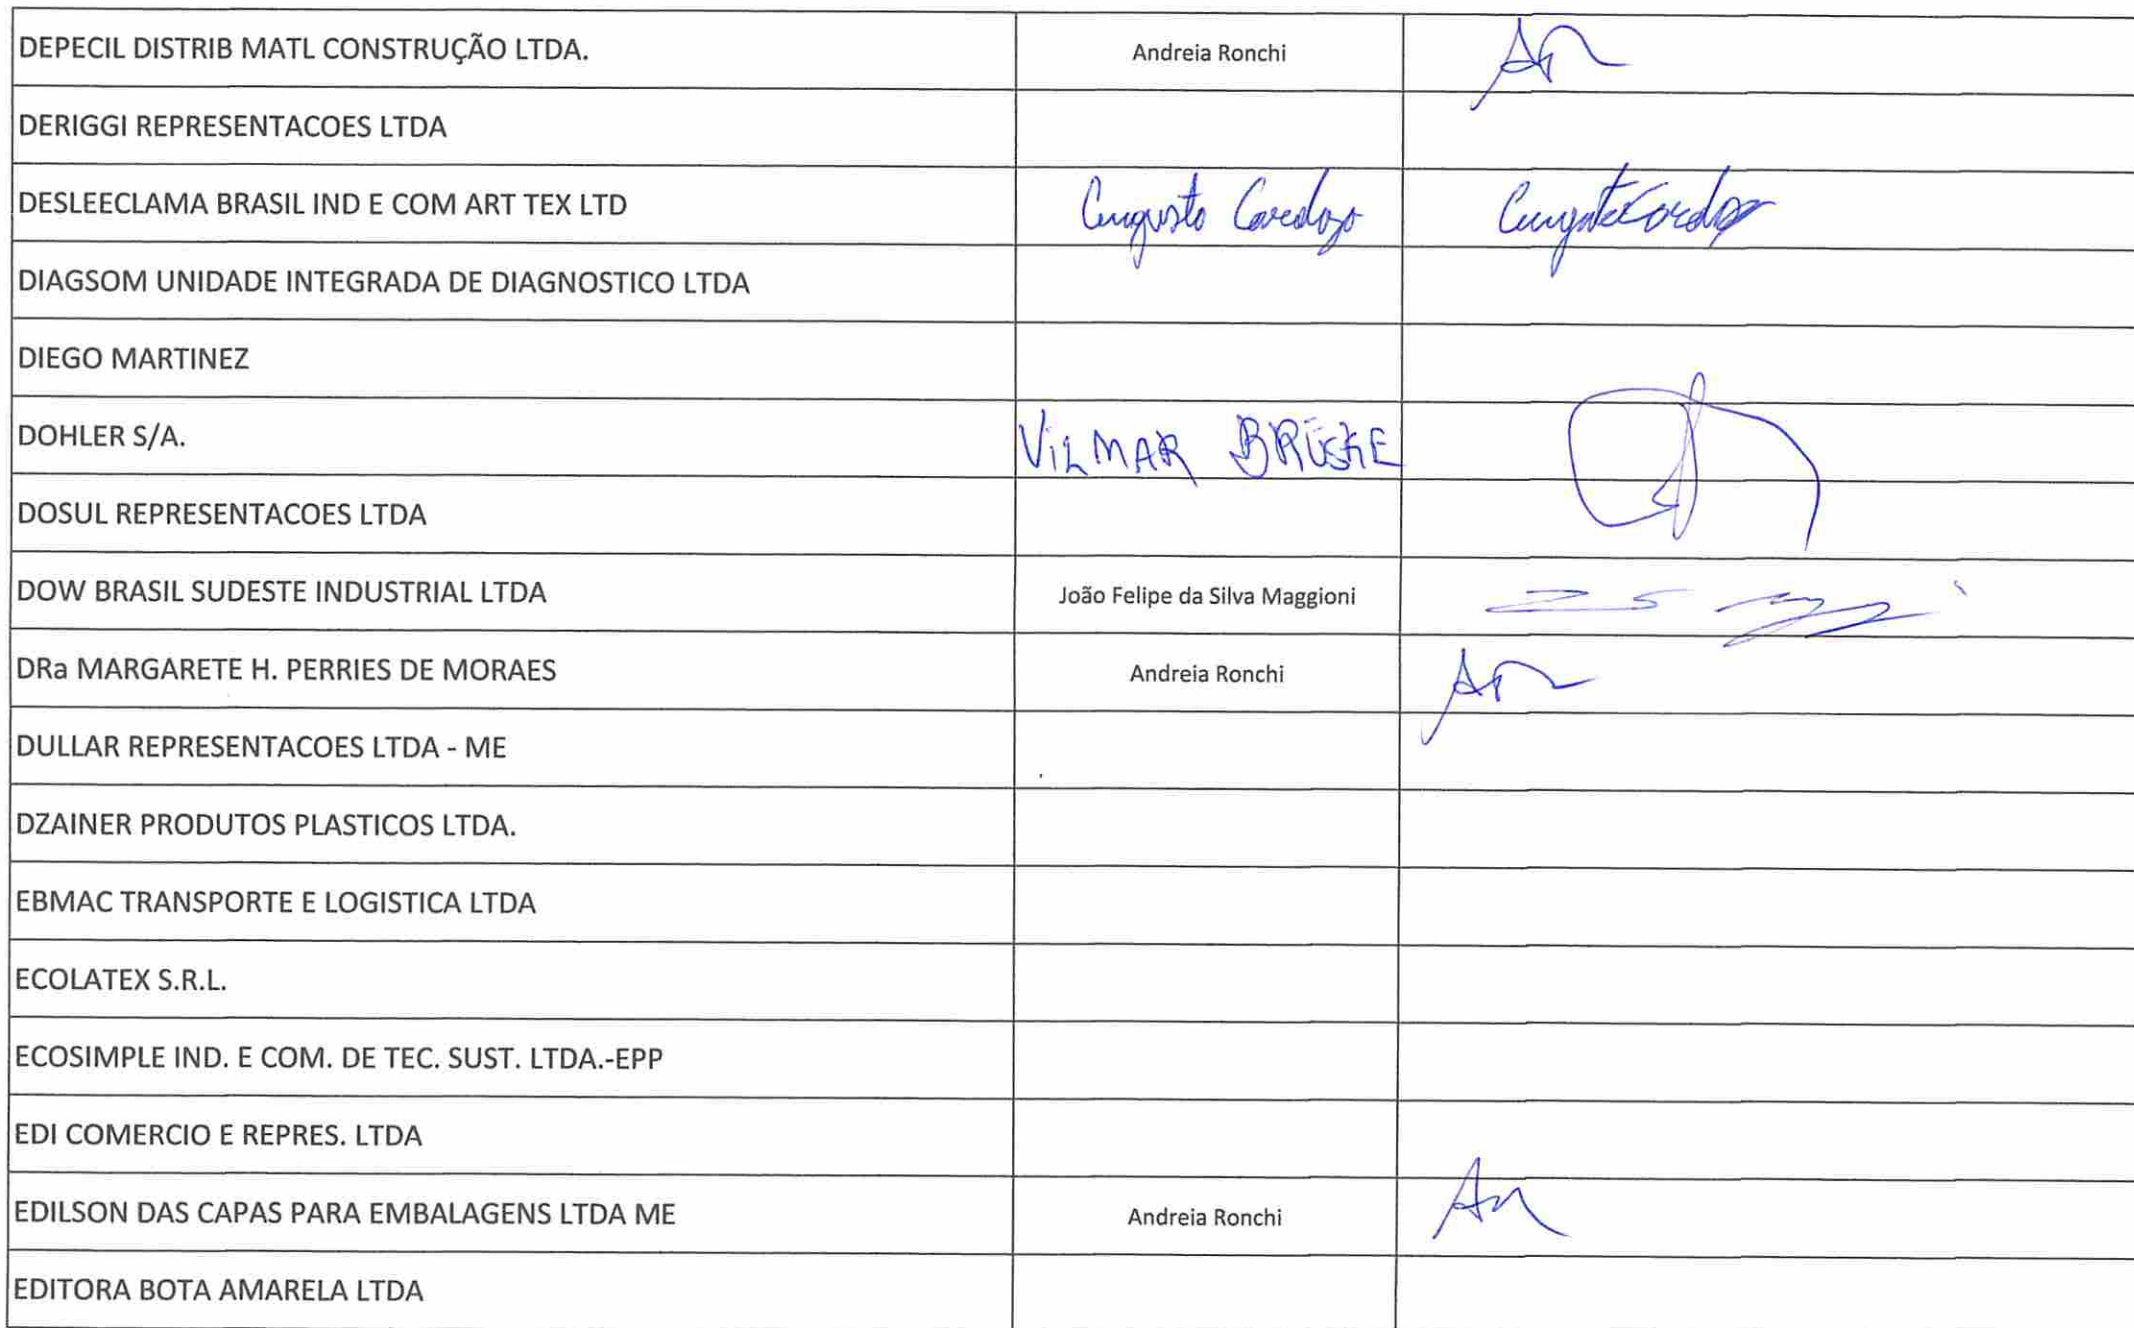 DEPECIL DISTRIB MATL CONSTRUÇÃO LTDA. Andreia Ronchi
DERIGGI REPRESENTACOES LTDA
DESLEECLAMA BRASIL IND E COM ART TEX LTD Augusto Cardozo
DIAGSOM UNIDADE INTEGRADA DE DIAGNOSTICO LTDA
DIEGO MARTINEZ
DOHLER S/A. VILMAR BRÜSKE
DOSUL REPRESENTACOES LTDA
DOW BRASIL SUDESTE INDUSTRIAL LTDA João Felipe da Silva Maggioni
DRa MARGARETE H. PERRIES DE MORAES Andreia Ronchi
DULLAR REPRESENTACOES LTDA - ME
DZAINER PRODUTOS PLASTICOS LTDA.
EBMAC TRANSPORTE E LOGISTICA LTDA
ECOLATEX S.R.L.
ECOSIMPLE IND. E COM. DE TEC. SUST. LTDA.-EPP
EDI COMERCIO E REPRES. LTDA
EDILSON DAS CAPAS PARA EMBALAGENS LTDA ME Andreia Ronchi
EDITORA BOTA AMARELA LTDA